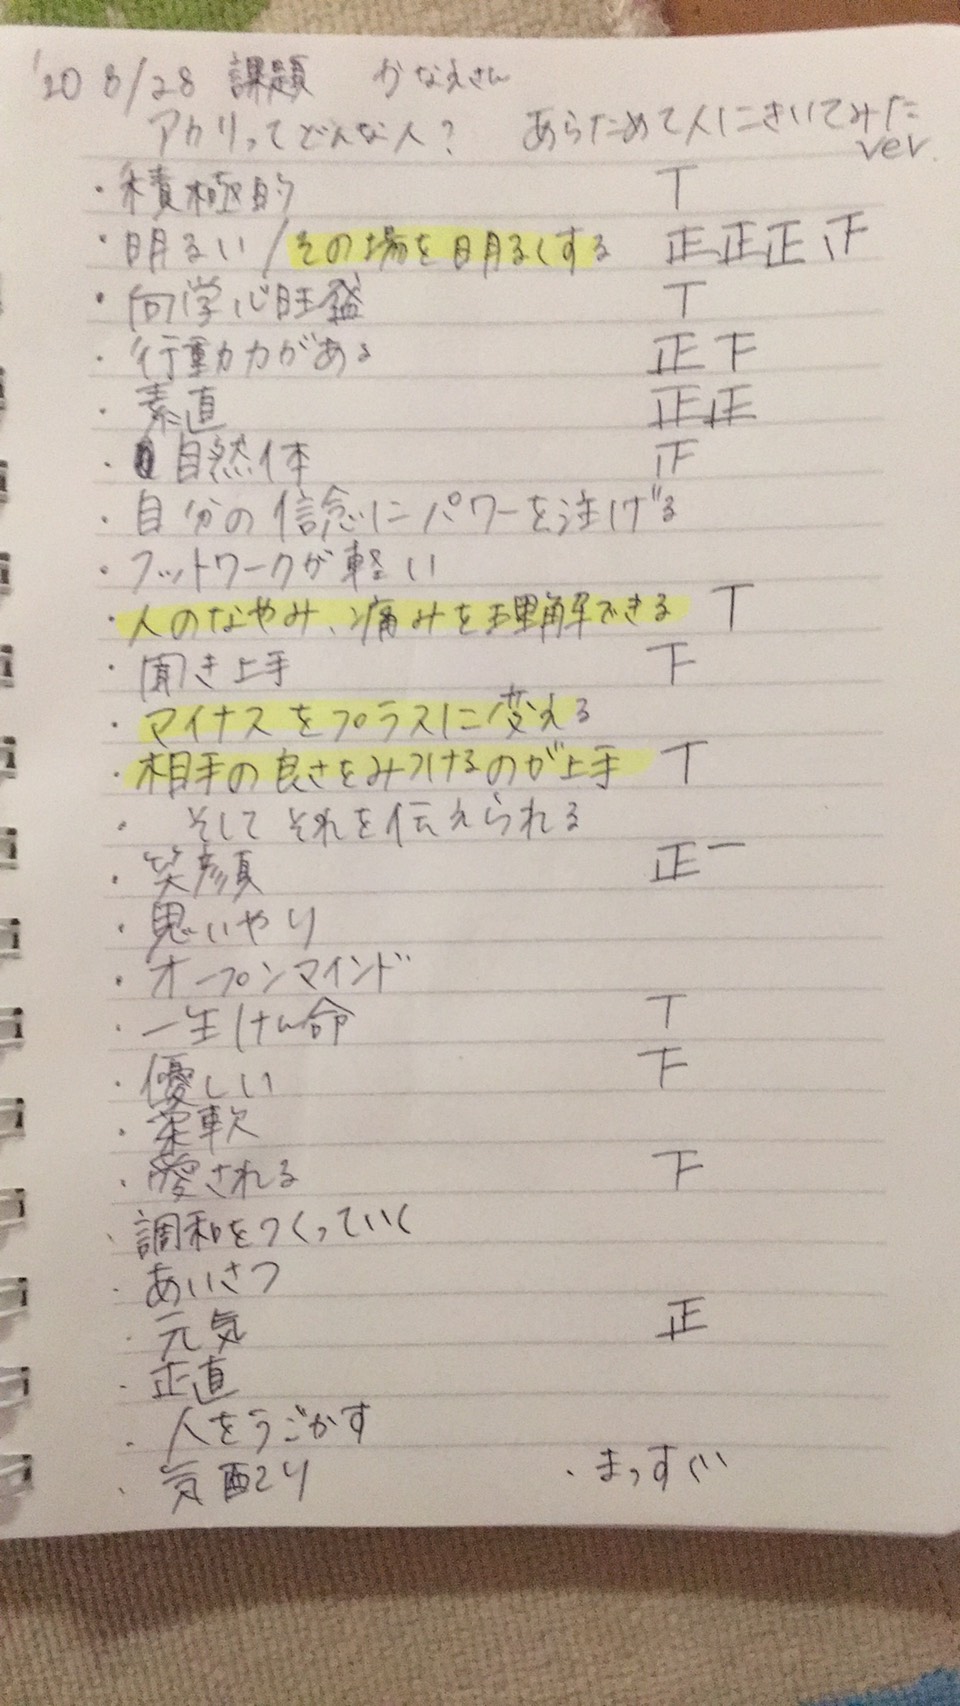 '20 8/28 課題 かなえさん
アカリってどんな人? あらためて人にきいてみた
ver.
・積極的 T
・明るい/その場を明るくする 正正正正
・向学心旺盛 T
・行動力がある 正下
・素直 正正
・自然体 正
・自分の信念にパワーを注げる
・フットワークが軽い
・人のなやみ、痛みを理解できる T
・聞き上手 下
・マイナスをプラスに変える
・相手の良さをみつけるのが上手 T
・そしてそれを伝えられる
・笑顔 正一
・思いやり
・オープンマインド
・一生けん命 T
・優しい 下
・柔軟
・愛される 下
・調和をつくっていく
・あいさつ
・元気 正
・正直
・人をうごかす
・気配り ・まっすぐ